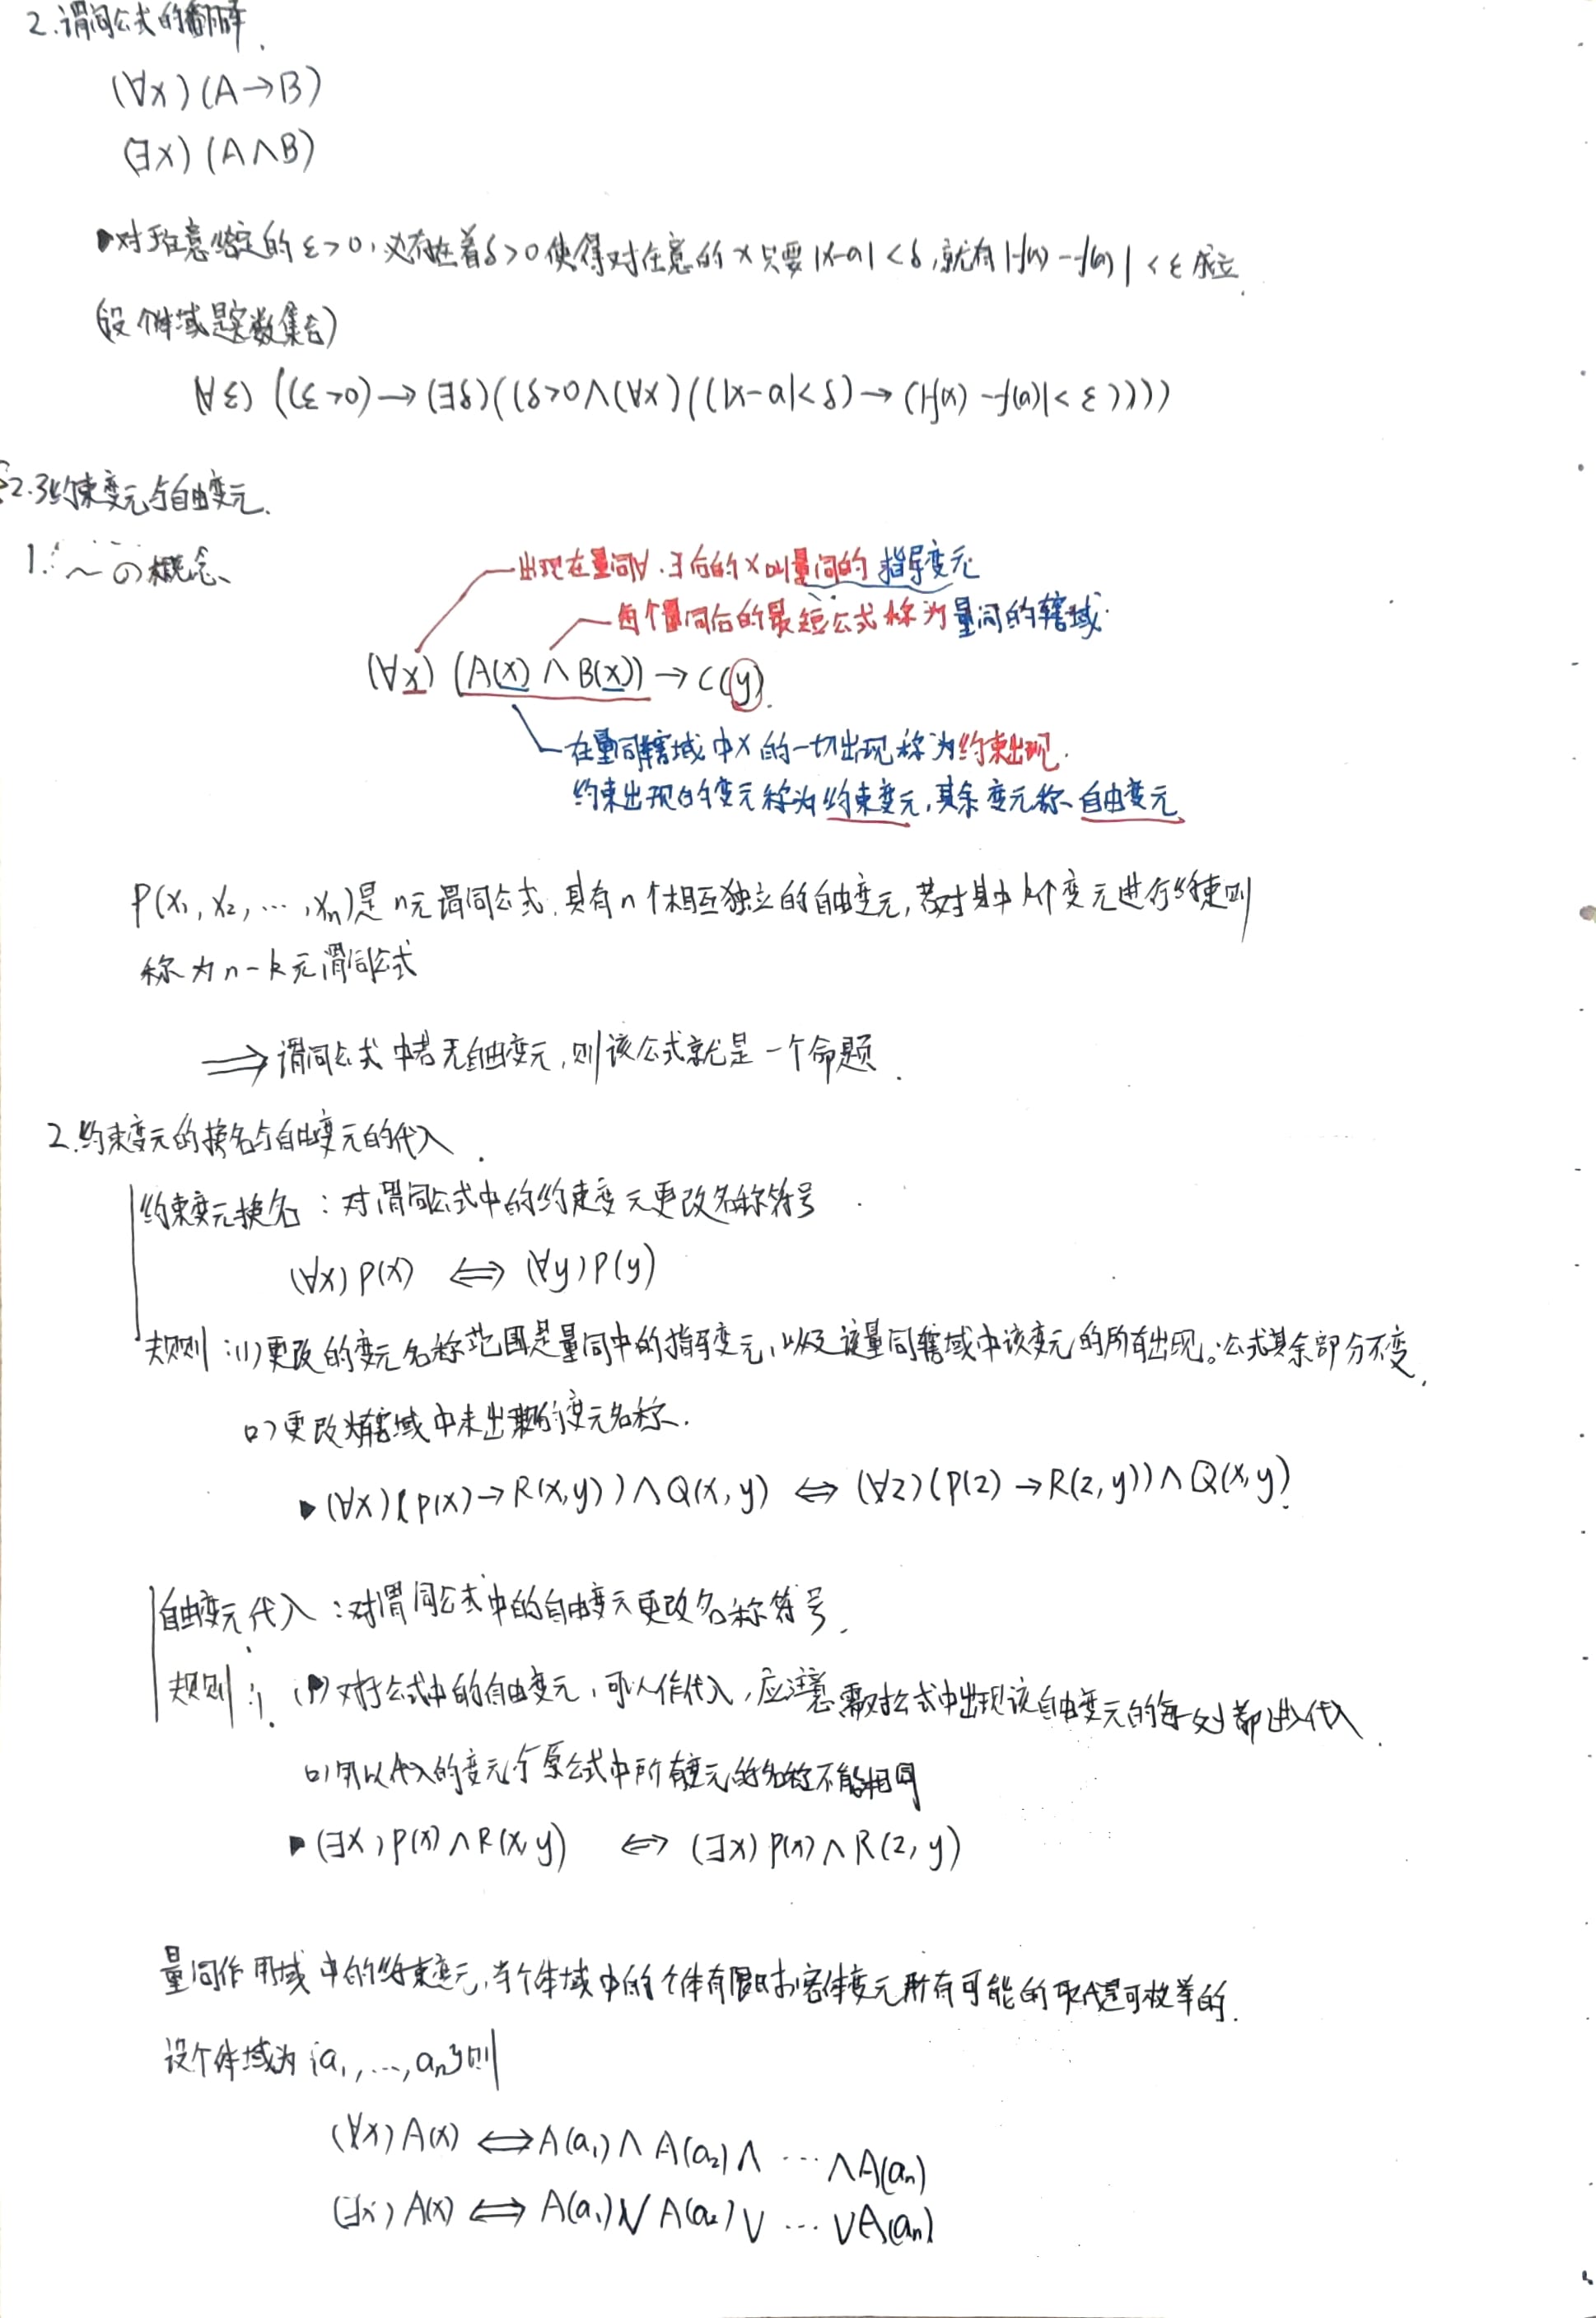 2.谓词公式的翻译.
(∀x)(A→B)
(∃x)(A∧B)
▶对于任意给定的ε>0,必存在着δ>0使得对任意的x只要|x-a|<δ,就有|f(x)-f(a)|<ε成立.
(设个体域是实数集合)
∀ε)((ε>0)→(∃δ)((δ>0∧(∀x)((|x-a|<δ)→(|f(x)-f(a)|<ε))))
§2.3约束变元与自由变元.
1.~の概念、
出现在量词∀.∃后的x叫量词的指导变元
每个量词后的最短公式称为量词的辖域.
(∀x)(A(x)∧B(x))→C(y).
在量词辖域中x的一切出现称为约束出现.
约束出现的变元称为约束变元,其余变元称、自由变元
P(x₁,x₂,…,xₙ)是n元谓词公式,具有n个相互独立的自由变元,若对其中k个变元进行约束则
称为n-k元谓词公式
⟹谓词公式中若无自由变元,则该公式就是一个命题.
2.约束变元的换名与自由变元的代入.
约束变元换名:对谓词公式中的约束变元更改名称符号
(∀x)P(x) ⟺ (∀y)P(y)
规则:(1)更改的变元名称范围是量词中的指导变元,以及该量词辖域中该变元的所有出现。公式其余部分不变.
(2)更改为辖域中未出现的变元名称.
▶(∀x)(P(x)→R(x,y))∧Q(x,y) ⟺ (∀z)(P(z)→R(z,y))∧Q(x,y).
自由变元代入:对谓词公式中的自由变元更改名称符号.
规则: (1)对于公式中的自由变元,可以作代入,应注意需对公式中出现该自由变元的每一处都进行代入.
(2)用以代入的变元与原公式中所有变元的名称不能相同
▶(∃x)P(x)∧R(x,y) ⟺ (∃x)P(x)∧R(z,y)
量词作用域中的约束变元,当个体域中的个体有限时,客体变元所有可能的取代是可枚举的.
设个体域为{a₁,…,aₙ}则
(∀x)A(x) ⟺ A(a₁)∧A(a₂)∧ … ∧A(aₙ)
(∃x)A(x) ⟺ A(a₁)∨A(a₂)∨ … ∨A(aₙ)